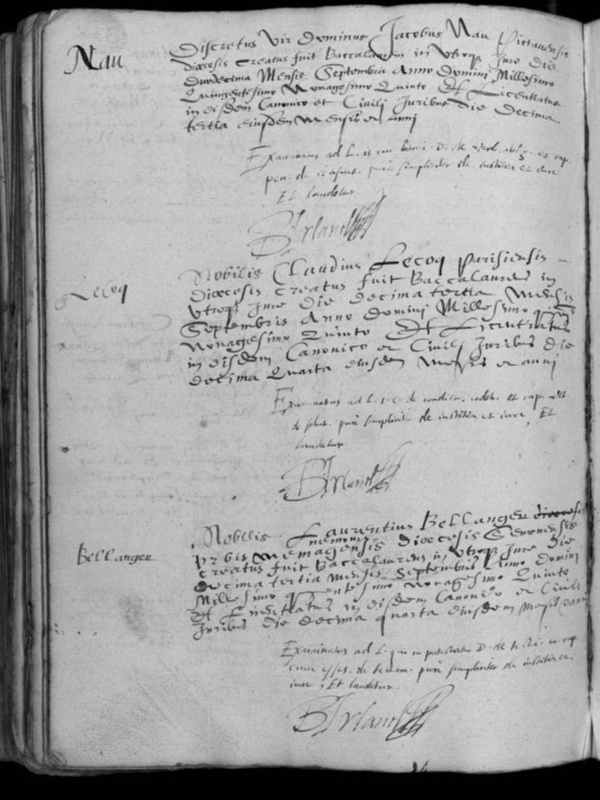 Nau
Discretus Vir Dominus Jacobus Nau Pictauensis
diœcesis Creatus fuit Baccalaureus in Vtroq Jure die
duodecima Mensis Septembris Anno Domini Millesimo
Quingentesimo Nonagesimo Quinto Et Licentiatus
in eisdem Canonico et Ciuili Juribus die decima
tertia eiusdem mensis et anni
Examinatus ad L. et cap.
pen. de pure simpliciter de iustitia et iure
Et laudetur
BIrland
Lecoq
Nobilis Claudius Lecoq Parisiensis
diœcesis Creatus fuit Baccalaureus in
Vtroq Jure die decima tertia Mensis
Septembris Anno Domini Millesimo
Nonagesimo Quinto Et Licentiatus
in eisdem Canonico et Ciuili Juribus die
decima Quarta eiusdem mensis et anni
Examinatus ad L. de et cap.
de solut. pure simpliciter de iustitia et iure, Et
laudetur
BIrland
Bellanger
Nobilis Laurentius Bellanger
Vrbis diœcesis Cenomensis
creatus fuit Baccalaureus in Vtroq Jure die
decima tertia Mensis Septembris Anno Domini
Millesimo Quingentesimo Nonagesimo Quinto
Et Licentiatus in eisdem Canonico et Ciuili
Juribus die decima quarta eiusdem Mensis et anni
Examinatus ad L. qui in D. de
pure simpliciter de iustitia et
iure, Et laudetur.
BIrland